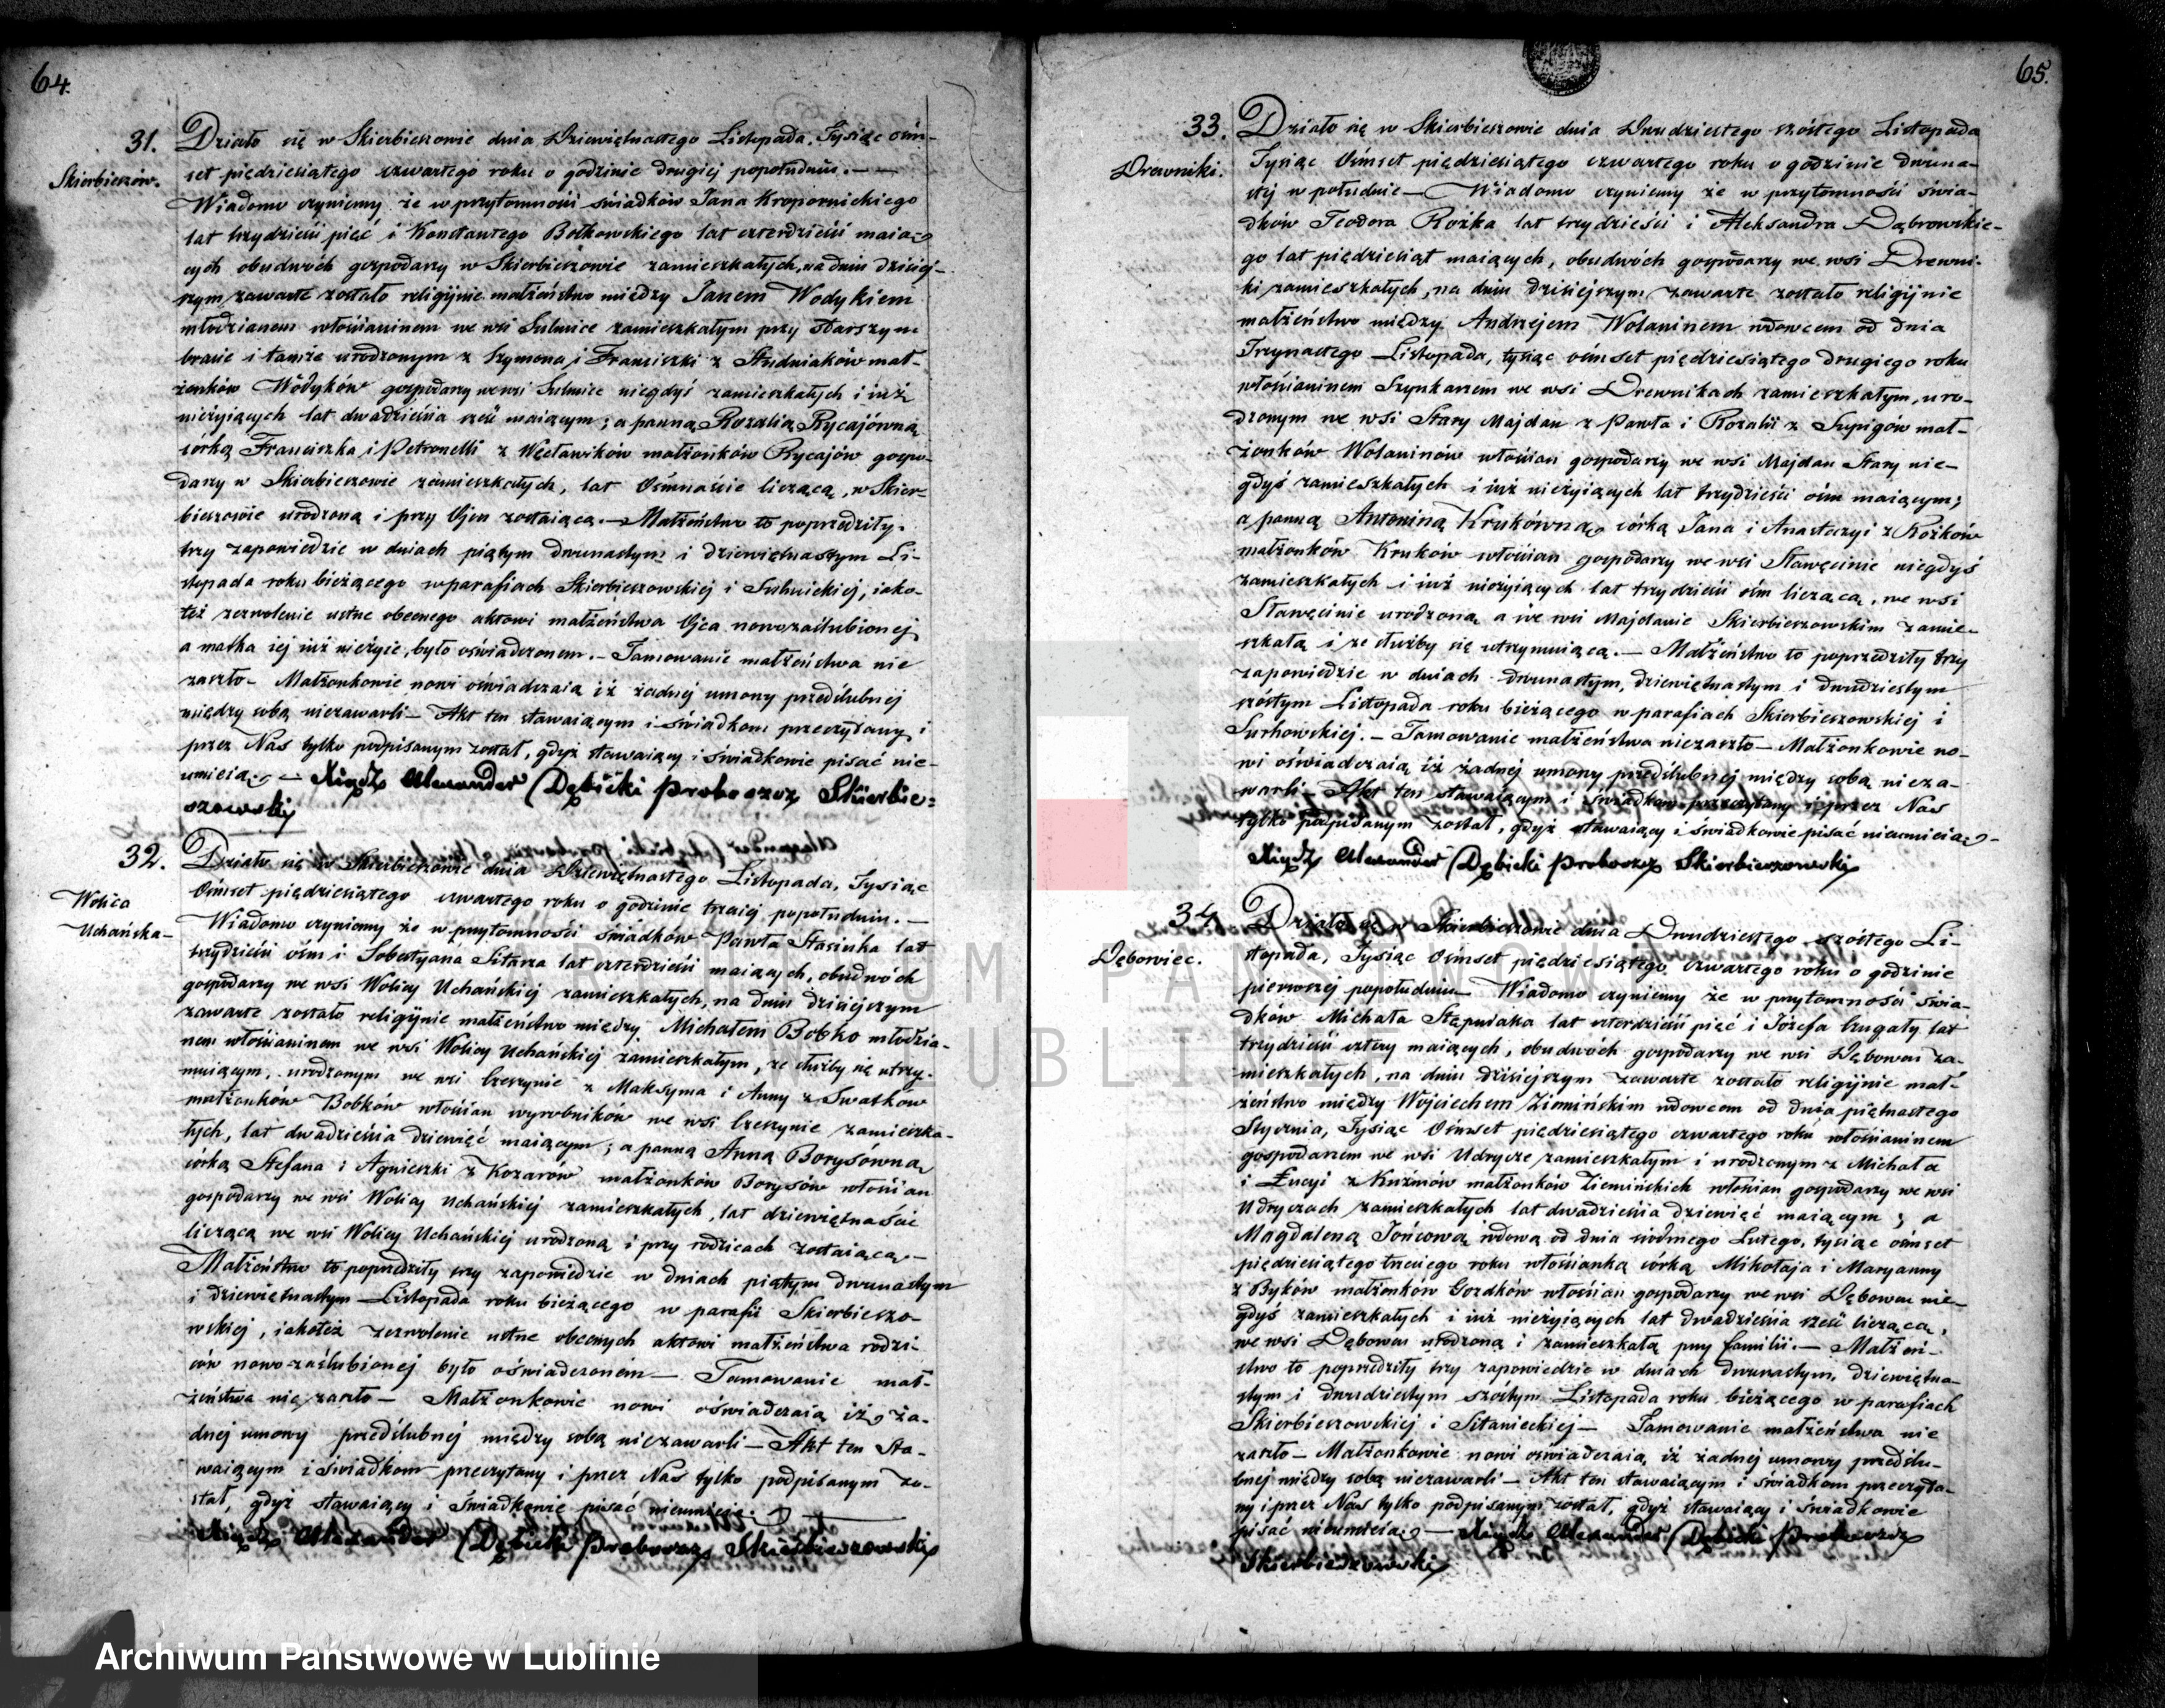 64.
31.
Skierbieszów.
Działo się w Skierbieszowie dnia Dziewiętnastego Listopada, Tysiąc ośm-
set pięćdziesiątego czwartego roku o godzinie drugiej popołudniu. —
Wiadomo czyniemy że w przytomności świadków Jana Kropornickiego
lat trzydzieści pięć i Konstantego Bołkowskiego lat czterdzieści maią-
cych obudwóch gospodarzy w Skierbieszowie zamieszkałych, na dniu dzisiej-
szym zawarte zostało religijnie małżeństwo między Janem Wodykiem
młodzianem włościaninem we wsi Sulmice zamieszkałym przy starszym
bracie i tamże urodzonym z Szymona i Franciszki z Studniaków mał-
żonków Wodyków gospodarzy we wsi Sulmice niegdyś zamieszkałych i iuż
nieżyiących lat dwadzieścia sześć maiącym; a panną Rozalią Rycajówną
córką Franciszka i Petronelli z Węcławików małżonków Rycajów gospo-
darzy w Skierbieszowie zamieszkałych, lat Ośmnaście liczącą, w Skier-
bieszowie urodzoną i przy Ojcu zostaiącą. — Małżeństwo to poprzedziły
trzy zapowiedzie w dniach piątym dwunastym i dziewiętnastym Li-
stopada roku bieżącego w parafiach Skierbieszowskiej i Suchowskiej, iako-
też zezwolenie ustne obecnego aktowi małżeństwa Ojca nowozaślubionej
a matka iej iuż nieżyie, było oświadczonem. — Tamowanie małżeństwa nie
zaszło — Małżonkowie nowi oświadczaią iż żadnej umowy przedślubnej
między sobą niezawarli — Akt ten stawaiącym i świadkom przeczytany i
przez Nas tylko podpisanym został, gdyż stawaiący i świadkowie pisać nie-
umieią. — Xiądz Alexander Dębicki Proboszcz Skierbie-
szowski
32.
Wolica
Uchańska-
Działo się w Skierbieszowie dnia Dziewiętnastego Listopada, Tysiąc
Ośmset pięćdziesiątego czwartego roku o godzinie trzciej popołudniu. —
Wiadomo czyniemy że w przytomności świadków Pawła Stasiuka lat
trzydzieści ośm i Sobestyana Sitarza lat czterdzieści maiących, obudwóch
gospodarzy we wsi Wolicy Uchańskiej zamieszkałych, na dniu dzisiejszym
zawarte zostało religijnie małżeństwo między Michałem Bobko młodzia-
nem włościaninem we wsi Wolicy Uchańskiej zamieszkałym, ze służby się utrzy-
muiącym, urodzonym we wsi Czeszynie z Maksyma i Anny z Swatków
małżonków Bobków włościan wyrobników we wsi Czeszynie zamieszka-
łych, lat dwadzieścia dziewięć maiącym; a panną Anną Borysówną
córką Stefana i Agnieszki z Kozarów małżonków Borysów włościan
gospodarzy we wsi Wolicy Uchańskiej zamieszkałych, lat dziewiętnaście
liczącą we wsi Wolicy Uchańskiej urodzoną i przy rodzicach zostaiącą —
Małżeństwo to poprzedziły trzy zapowiedzie w dniach piątym, dwunastym
i dziewiętnastym Listopada roku bieżącego w parafii Skierbieszo-
wskiej, iakoteż zezwolenie ustne obecnych aktowi małżeństwa rodzi-
ców nowo-zaślubionej było oświadczonem — Tamowanie mał-
żeństwa nie zaszło — Małżonkowie nowi oświadczaią iż ża-
dnej umowy przedślubnej między sobą niezawarli — Akt ten sta-
waiącym i świadkom przeczytany i przez Nas tylko podpisanym zo-
stał, gdyż stawaiący i świadkowie pisać nieumieią. —
Xiądz Alexander Dębicki Proboszcz Skierbieszowski
65.
33.
Drewniki.
Działo się w Skierbieszowie dnia Dwudziestego szóstego Listopada
Tysiąc Ośmset pięćdziesiątego czwartego roku o godzinie dwuna-
stej w południe — Wiadomo czyniemy że w przytomności świa-
dków Teodora Rożka lat trzydzieści i Aleksandra Dąbrowskie-
go lat pięćdziesiąt maiących, obudwóch gospodarzy we wsi Drewni-
ki zamieszkałych, na dniu dzisiejszym zawarte zostało religijnie
małżeństwo między Andrzejem Wolaninem wdowcem od dnia
Trzynastego Listopada, tysiąc ośmset pięćdziesiątego drugiego roku
włościaninem Szynkarzem we wsi Drewnikach zamieszkałym, uro-
dzonym we wsi Stary Majdan z Pawła i Rozalii z Supigów mał-
żonków Wolaninów włościan gospodarzy we wsi Majdan Stary nie-
gdyś zamieszkałych i iuż nieżyiących lat trzydzieści ośm maiącym;
a panną Antoniną Krukówną córką Jana i Anastazyi z Rożków
małżonków Kruków włościan gospodarzy we wsi Sławęcinie niegdyś
zamieszkałych i iuż nieżyiących lat trzydzieści ośm liczącą, we wsi
Sławęcinie urodzoną a we wsi Majdanie Skierbieszowskim zamie-
szkałą i ze służby się utrzymuiącą. — Małżeństwo to poprzedziły trzy
zapowiedzie w dniach dwunastym, dziewiętnastym i dwudziestym
szóstym Listopada roku bieżącego w parafiach Skierbieszowskiej i
Surhowskiej. — Tamowanie małżeństwa niezaszło — Małżonkowie no-
wi oświadczaią iż żadnej umowy przedślubnej między sobą nieza-
warli — Akt ten stawaiącym i świadkom przeczytany i przez Nas
tylko podpisanym został, gdyż stawaiący i świadkowie pisać nieumieią —
Xiądz Alexander Dębicki Proboszcz Skierbieszowski
34.
Dębowiec.
Działo się w Skierbieszowie dnia Dwudziestego szóstego Li-
stopada, Tysiąc Ośmset pięćdziesiątego czwartego roku o godzinie
pierwszej popołudniu — Wiadomo czyniemy że w przytomności świa-
dków Michała Stępniaka lat czterdzieści pięć i Józefa Czugały lat
trzydzieści cztery maiących, obudwóch gospodarzy we wsi Dębowcu za-
mieszkałych, na dniu dzisiejszym zawarte zostało religijnie mał-
żeństwo między Wojciechem Ziemińskim wdowcem od dnia piętnastego
Stycznia, Tysiąc Ośmset pięćdziesiątego czwartego roku włościaninem
gospodarzem we wsi Udrycze zamieszkałym i urodzonym z Michała
i Łucyi z Kuźmów małżonków Ziemińskich włościan gospodarzy we wsi
Udryczach zamieszkałych lat dwadzieścia dziewięć maiącym; a
Magdaleną Jońcową wdową od dnia siódmego Lutego, tysiąc ośmset
pięćdziesiątego trzciego roku włościanką córką Mikołaja i Maryanny
z Byków małżonków Gozdków włościan gospodarzy we wsi Dębowcu nie-
gdyś zamieszkałych i iuż nieżyiących lat dwadzieścia sześć liczącą,
we wsi Dębowcu urodzoną i zamieszkałą przy familii. — Małżeń-
stwo to poprzedziły trzy zapowiedzie w dniach dwunastym, dziewiętna-
stym i dwudziestym szóstym Listopada roku bieżącego w parafiach
Skierbieszowskiej i Sitanieckiej — Tamowanie małżeństwa nie
zaszło — Małżonkowie nowi oświadczaią iż żadnej umowy przedślu-
bnej między sobą niezawarli — Akt ten stawaiącym i świadkom przeczyta-
ny i przez Nas tylko podpisanym został, gdyż stawaiący i świadkowie
pisać nieumieią — Xiądz Alexander Dębicki Proboszcz
Skierbieszowski
Archiwum Państwowe w Lublinie